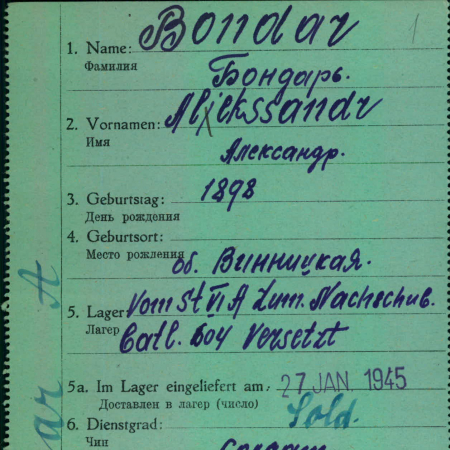 1
1. Name: Bondar
Фамилия Бондарь.
2. Vornamen: Aljekssandr
Имя Александр.
3. Geburtstag: 1898
День рождения
4. Geburtsort:
Место рождения об. Винницкая.
5. Lager Vom St VI A zum. Nachschub.
Лагерь Batl. 604 Versetzt
5a. Im Lager eingeliefert am: 27 JAN. 1945
Доставлен в лагер (число)
6. Dienstgrad: Sold.
Чин